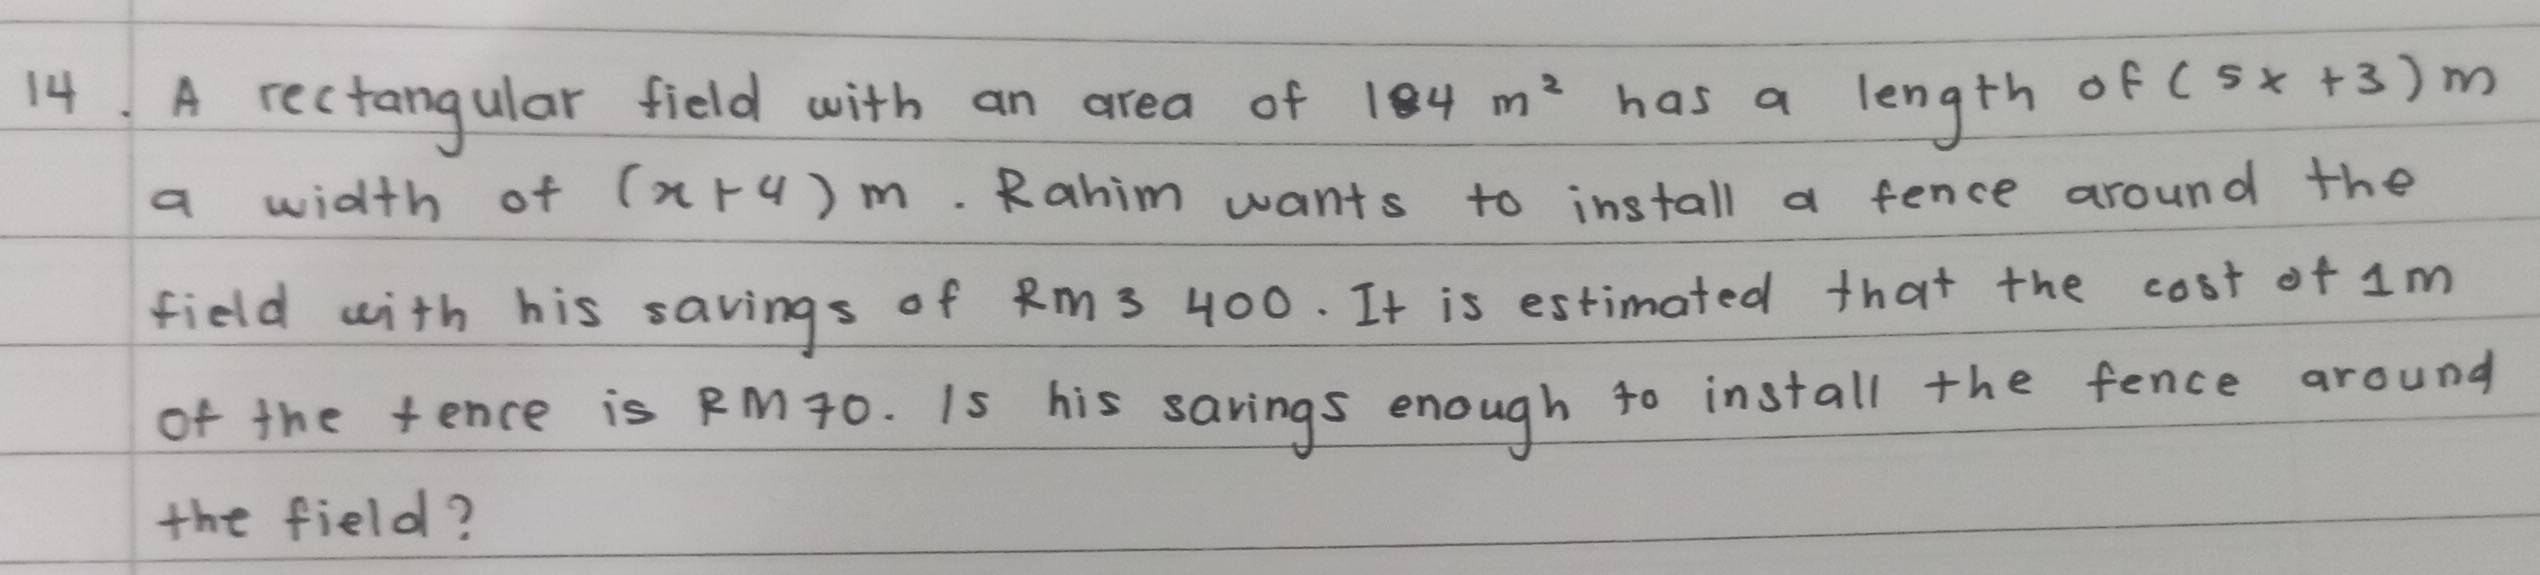 14. A rectangular field with an area of 184 m² has a length of (5x + 3) m
a width of (x + 4) m. Rahim wants to install a fence around the
field with his savings of RM 3 400. It is estimated that the cost of 1m
of the fence is RM70. Is his savings enough to install the fence around
the field?